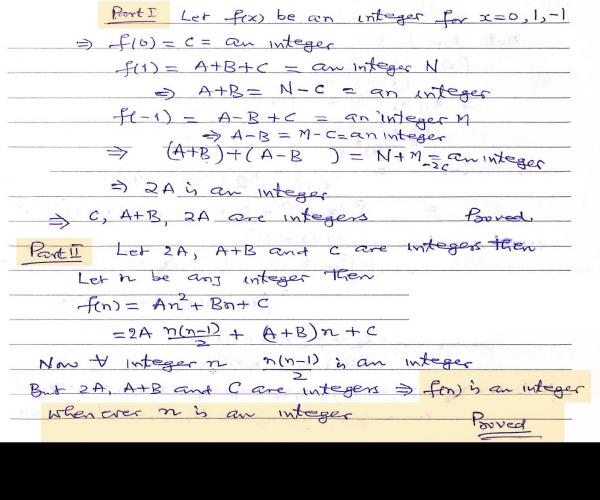 Part I Let f(x) be an integer for x=0, 1, -1
⇒ f(0) = C = an integer
f(1) = A+B+C = an integer N
⇒ A+B = N-C = an integer
f(-1) = A-B+C = an integer M
⇒ A-B = M-C = an integer
⇒ (A+B)+(A-B ) = N+M-2C = an integer
⇒ 2A is an integer
⇒ C, A+B, 2A are integers Proved.
Part II Let 2A, A+B and C are integers then
Let n be any integer then
f(n) = An² + Bn + C
= 2A n(n-1)/2 + (A+B)n + C
Now ∀ integer n n(n-1)/2 is an integer
But 2A, A+B and C are integers ⇒ f(n) is an integer
whenever n is an integer Proved